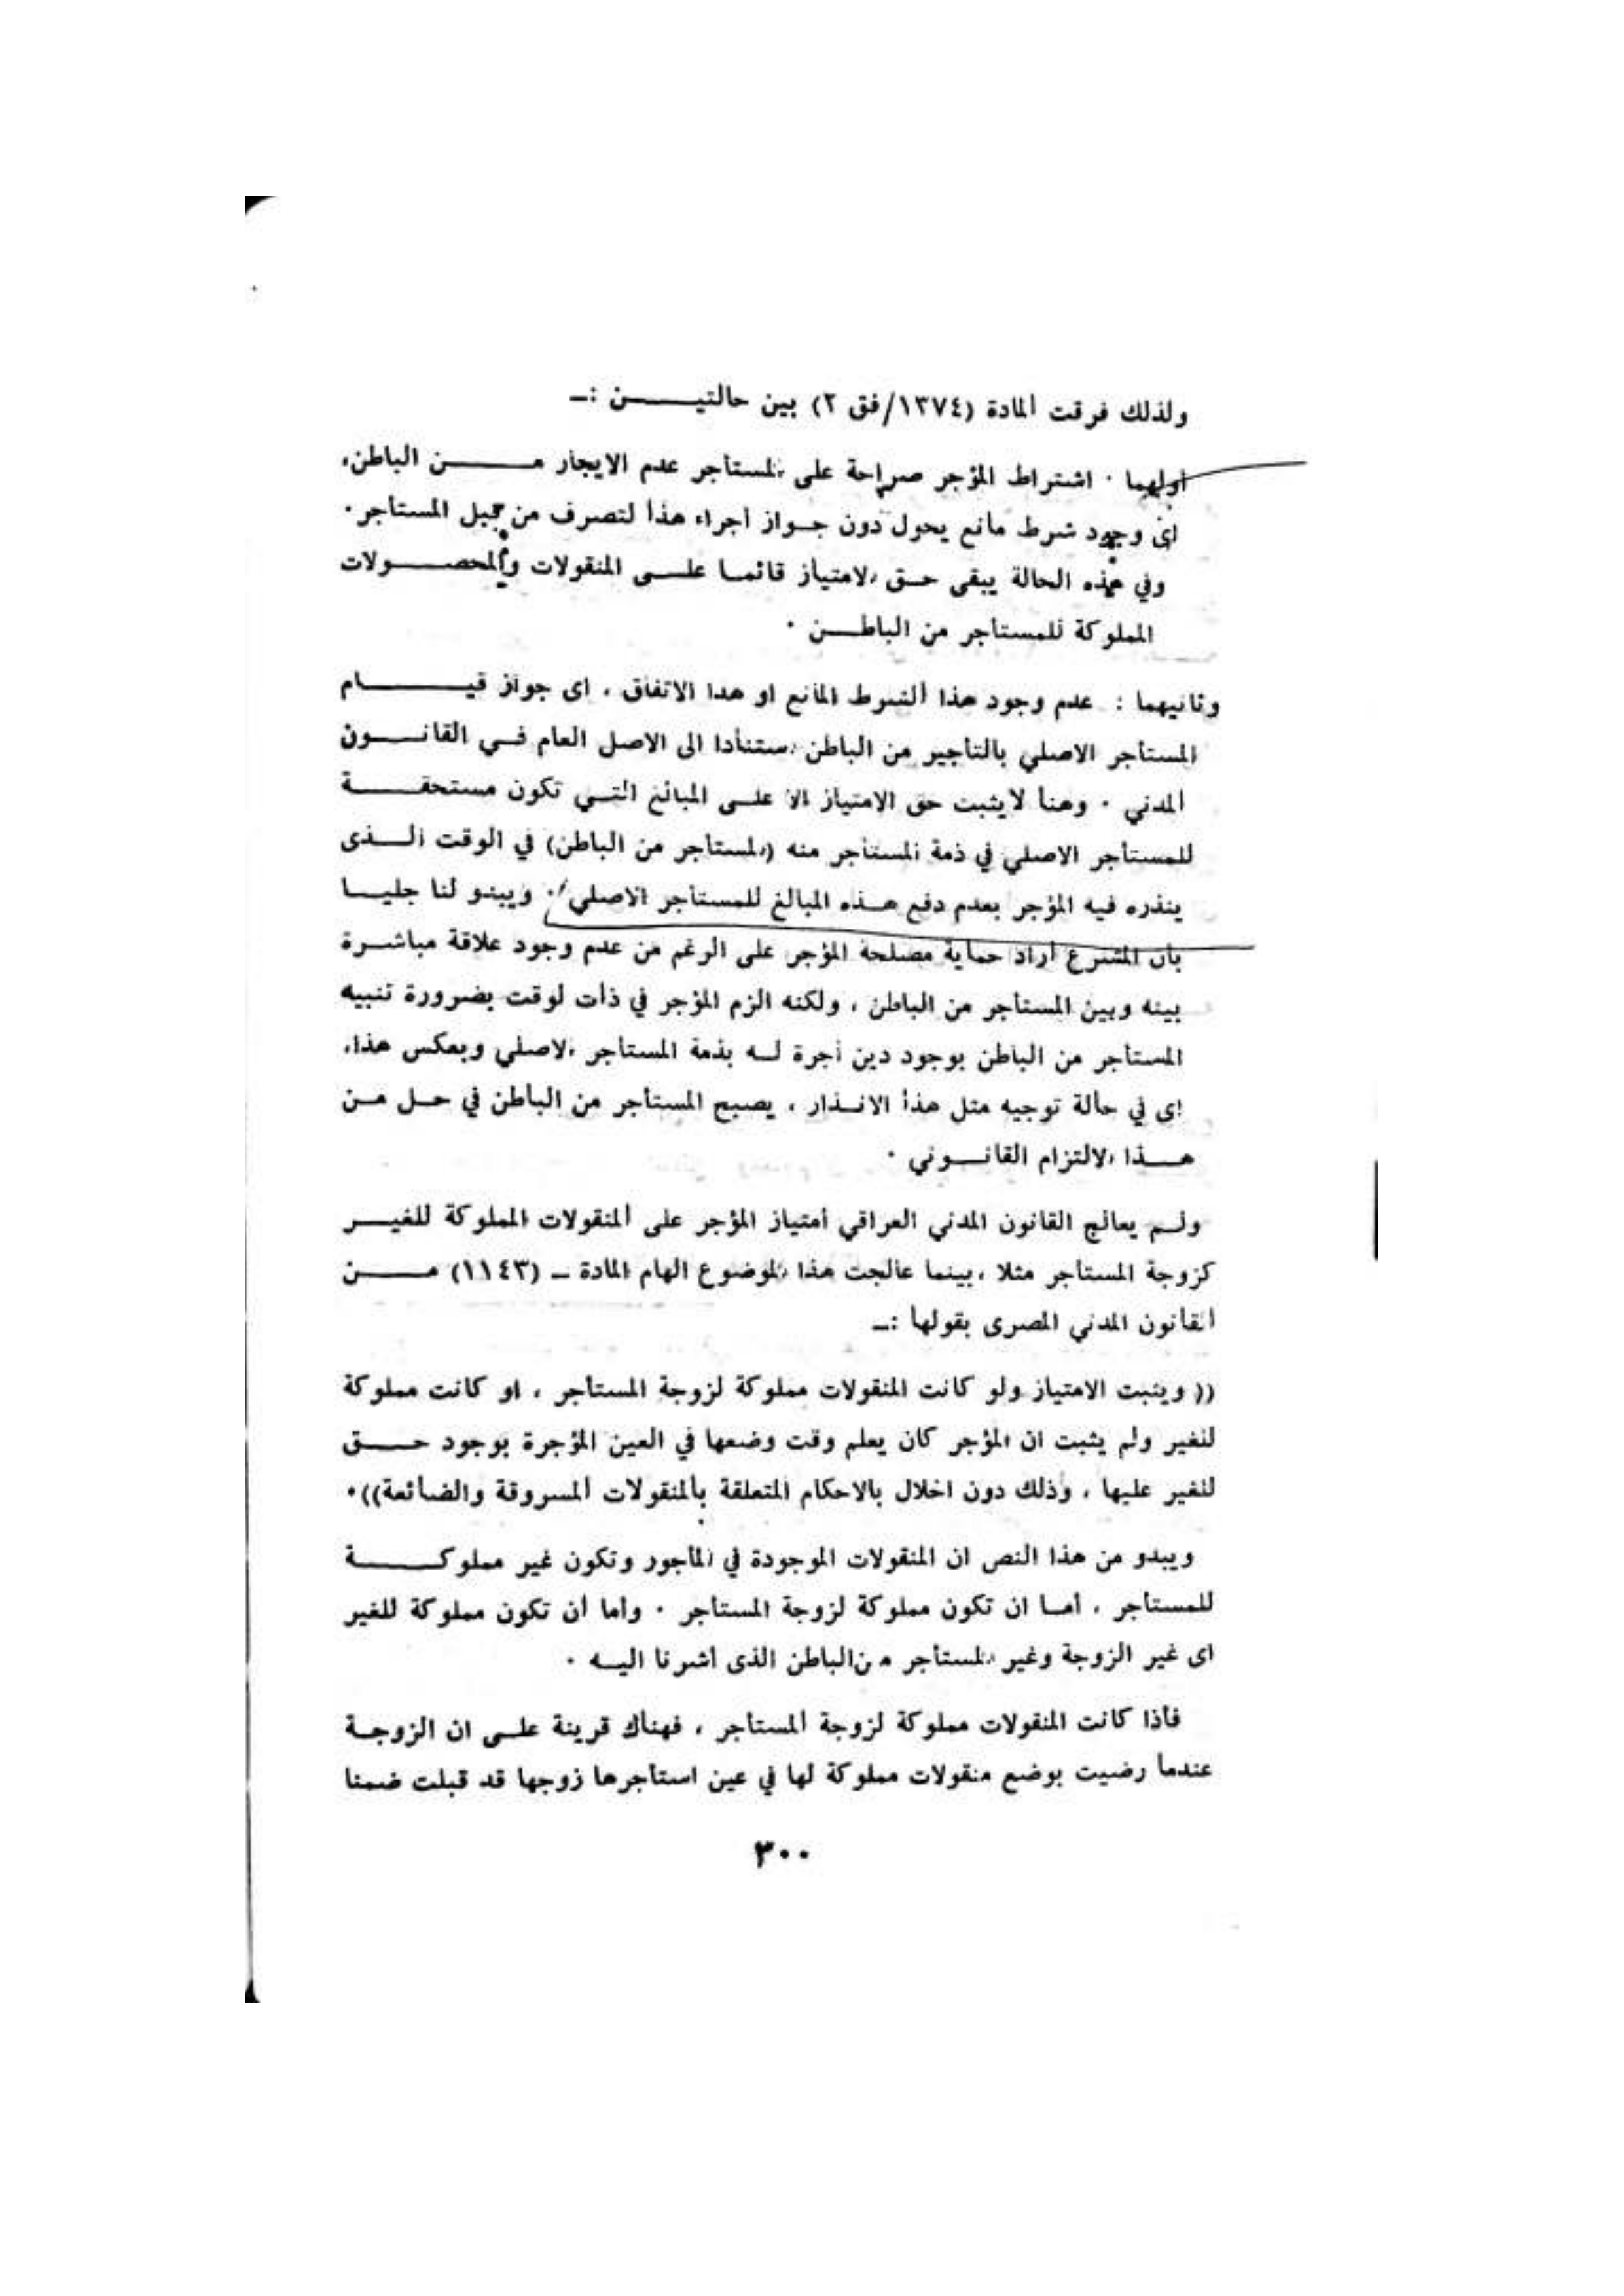 ولذلك فرقت المادة (١٣٧٤/فق ٢) بين حالتيـــن :ـ
اولهما ٠ اشتراط المؤجر صراحة على المستأجر عدم الايجار مـــن الباطن،
اى وجود شرط مانع يحول دون جـواز أجراء هذا لتصرف من قبل المستأجر ٠
وفي هذه الحالة يبقى حـق الامتياز قائمـا علـى المنقولات والمحصـولات
المملوكة للمستاجر من الباطـن ٠
وثانيهما : عدم وجود هذا الشرط المانع او هذا الاتفاق ، اى جواز قيـــام
المستأجر الاصلي بالتأجير من الباطن استنادا الى الاصل العام فـي القانـون
المدني ٠ وهنا لايثبت حق الامتياز الا علـى المبالغ التـي تكون مستحقـة
للمستأجر الاصلي في ذمة المستأجر منه (المستأجر من الباطن) في الوقت الـذى
ينذره فيه المؤجر بعدم دفع هـذه المبالغ للمستأجر الاصلي ٠ ويبدو لنا جليـا
بأن المشرع أراد حماية مصلحة المؤجر على الرغم من عدم وجود علاقة مباشـرة
بينه وبين المستأجر من الباطن ، ولكنه الزم المؤجر في ذات لوقت بضرورة تنبيه
المستأجر من الباطن بوجود دين أجرة لـه بذمة المستأجر الاصلي وبعكس هذا،
اى في حالة توجيه مثل هذا الانـذار ، يصبح المستأجر من الباطن في حـل مـن
هـذا الالتزام القانـوني ٠
ولـم يعالج القانون المدني العراقي أمتياز المؤجر على المنقولات المملوكة للغيـر
كزوجة المستأجر مثلا ،بينما عالجت هذا الموضوع الهام المادة ـ (١١٤٣) مـــن
القانون المدني المصرى بقولها :ـ
(( ويثبت الامتياز ولو كانت المنقولات مملوكة لزوجة المستأجر ، او كانت مملوكة
للغير ولم يثبت ان المؤجر كان يعلم وقت وضعها في العين المؤجرة بوجود حـــق
للغير عليها ، وذلك دون اخلال بالاحكام المتعلقة بالمنقولات المسروقة والضائعة))٠
ويبدو من هذا النص ان المنقولات الموجودة في المأجور وتكون غير مملوكـــة
للمستأجر ، أمـا ان تكون مملوكة لزوجة المستأجر ٠ وأما أن تكون مملوكة للغير
اى غير الزوجة وغير المستأجر من الباطن الذى أشرنا اليـه ٠
فأذا كانت المنقولات مملوكة لزوجة المستأجر ، فهناك قرينة علـى ان الزوجـة
عندما رضيت بوضع منقولات مملوكة لها في عين استأجرها زوجها قد قبلت ضمنا
٣٠٠